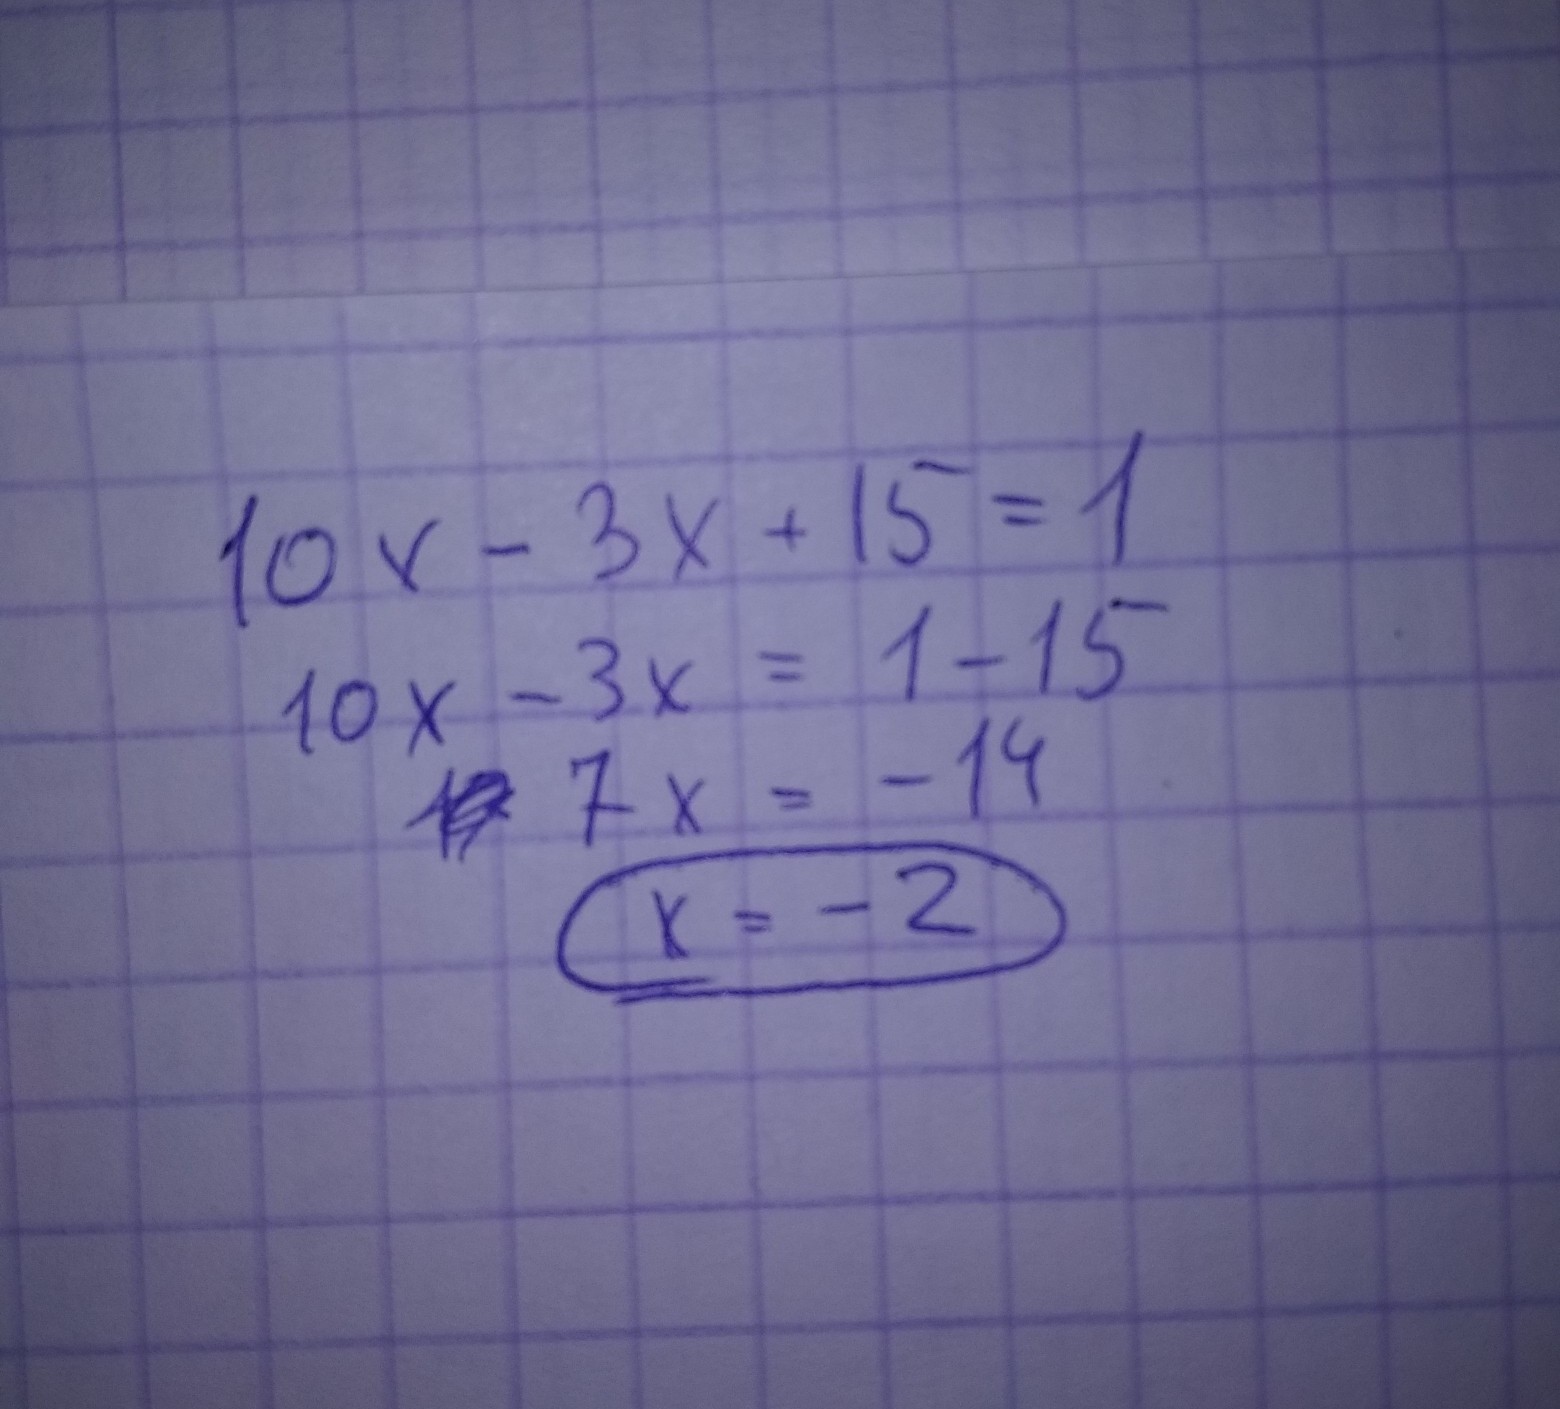 10x - 3x + 15 = 1
10x - 3x = 1 - 15
7x = -14
x = -2